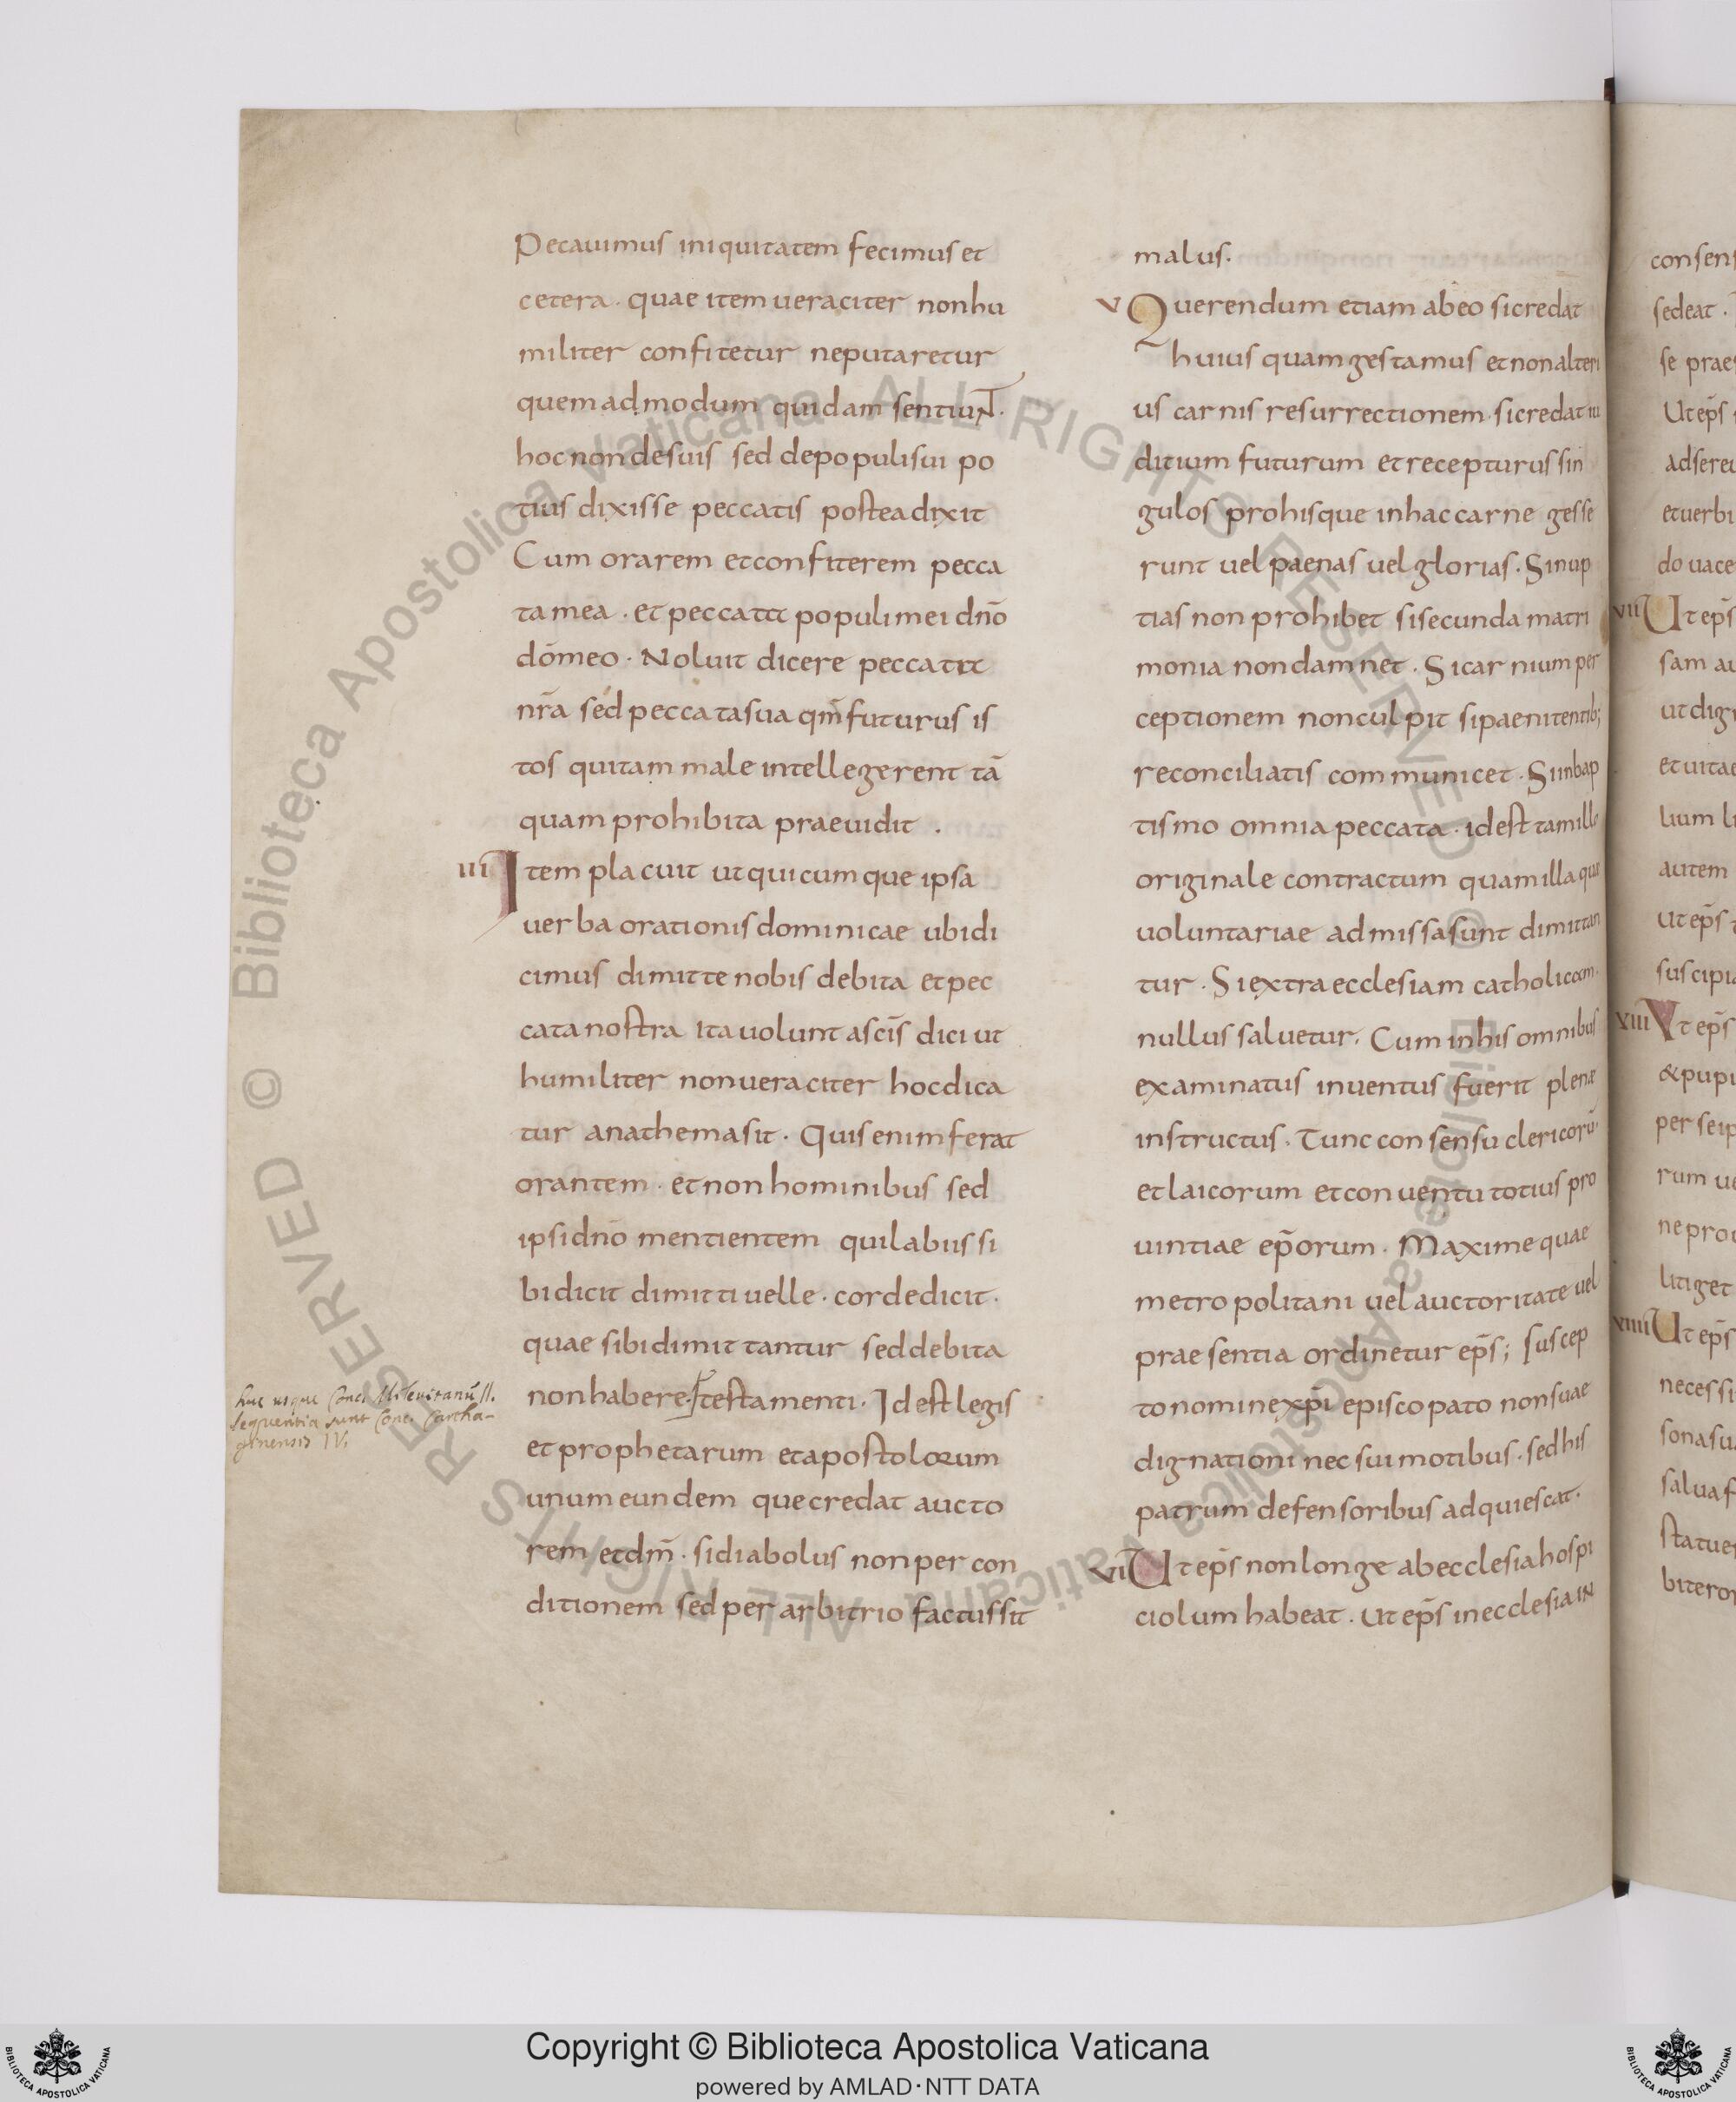 Pecauimus iniquitatem fecimus et
cetera · quae item ueraciter non hu
militer confitetur ne putaretur
quemadmodum quidam sentiunt·
hoc non de suis sed de populi sui po
tius dixisse peccatis postea dixit
Cum orarem et confiterem pecca
ta mea · et peccata populi mei dn̄o
dō meo · Noluit dicere peccata
nr̄a sed peccata sua qm̄ futurus is
tos qui tam male intellegerent tā
quam prohibita praeuidit .
III Item placuit ut quicumque ipsa
uerba orationis dominicae ubi di
cimus dimitte nobis debita et pec
cata nostra ita uolunt a sc̄is dici ut
humiliter non ueraciter hoc dica
tur anathema sit · Quis enim ferat
orantem · et non hominibus sed
ipsi dn̄o mentientem qui labiis si
bi dicit dimitti uelle · corde dicit ·
quae sibi dimittantur sed debita
non habere · testamenti · Id est legis
et prophetarum et apostolorum
unum eundem que credat aucto
rem et dm̄ · si diabolus non per con
ditionem sed per arbitrio factus sit
Huc usque Conc. Mileuitanū II.
sequentia sunt Conc. Cartha-
ginensis IV.
malus.
V Querendum etiam ab eo si credat
huius quam gestamus et non alteri
us carnis resurrectionem · si credat iu
ditium futurum et recepturus sin
gulos pro hisque in hac carne gesse
runt uel paenas uel glorias · Si nup
tias non prohibet si secunda matri
monia non damnet · Si carnium per
ceptionem non culpit si paenitentib;
reconciliatis communicet · Si in bap
tismo omnia peccata · id est tam illo
originale contractum quam illa que
uoluntariae admissa sunt dimittan
tur · Si extra ecclesiam catholicam
nullus saluetur · Cum in his omnibus
examinatus inuentus fuerit plenæ
instructus · Tunc consensu clericorū
et laicorum et conuentu totius pro
uintiae ep̄orum · Maxime quae
metropolitani uel auctoritate uel
praesentia ordinetur ep̄s; suscep
to nomine xp̄i episcopato non suae
dignationi nec sui motibus · sed his
patrum defensoribus adquiescat ·
VI Ut ep̄s non longe ab ecclesia hospi
ciolum habeat · Ut ep̄s in ecclesia in
consen
sedeat ·
se prae
Ut ep̄s
adsere
et uerbi
do uace
VII Ut ep̄s
sam au
ut dig
et uitae
lium li
autem
Ut ep̄s
suscipi
VIII Ut ep̄s
& pupi
per seip
rum ue
ne pro
litiget
VIIII Ut ep̄s
necessi
sona su
salua f
statue
bitero
© Biblioteca Apostolica Vaticana ALL RIGHTS RESERVED © Biblioteca Apostolica Vaticana ALL RIGHTS RESERVED
Copyright © Biblioteca Apostolica Vaticana
powered by AMLAD·NTT DATA
BIBLIOTECA APOSTOLICA VATICANA
BIBLIOTECA APOSTOLICA VATICANA